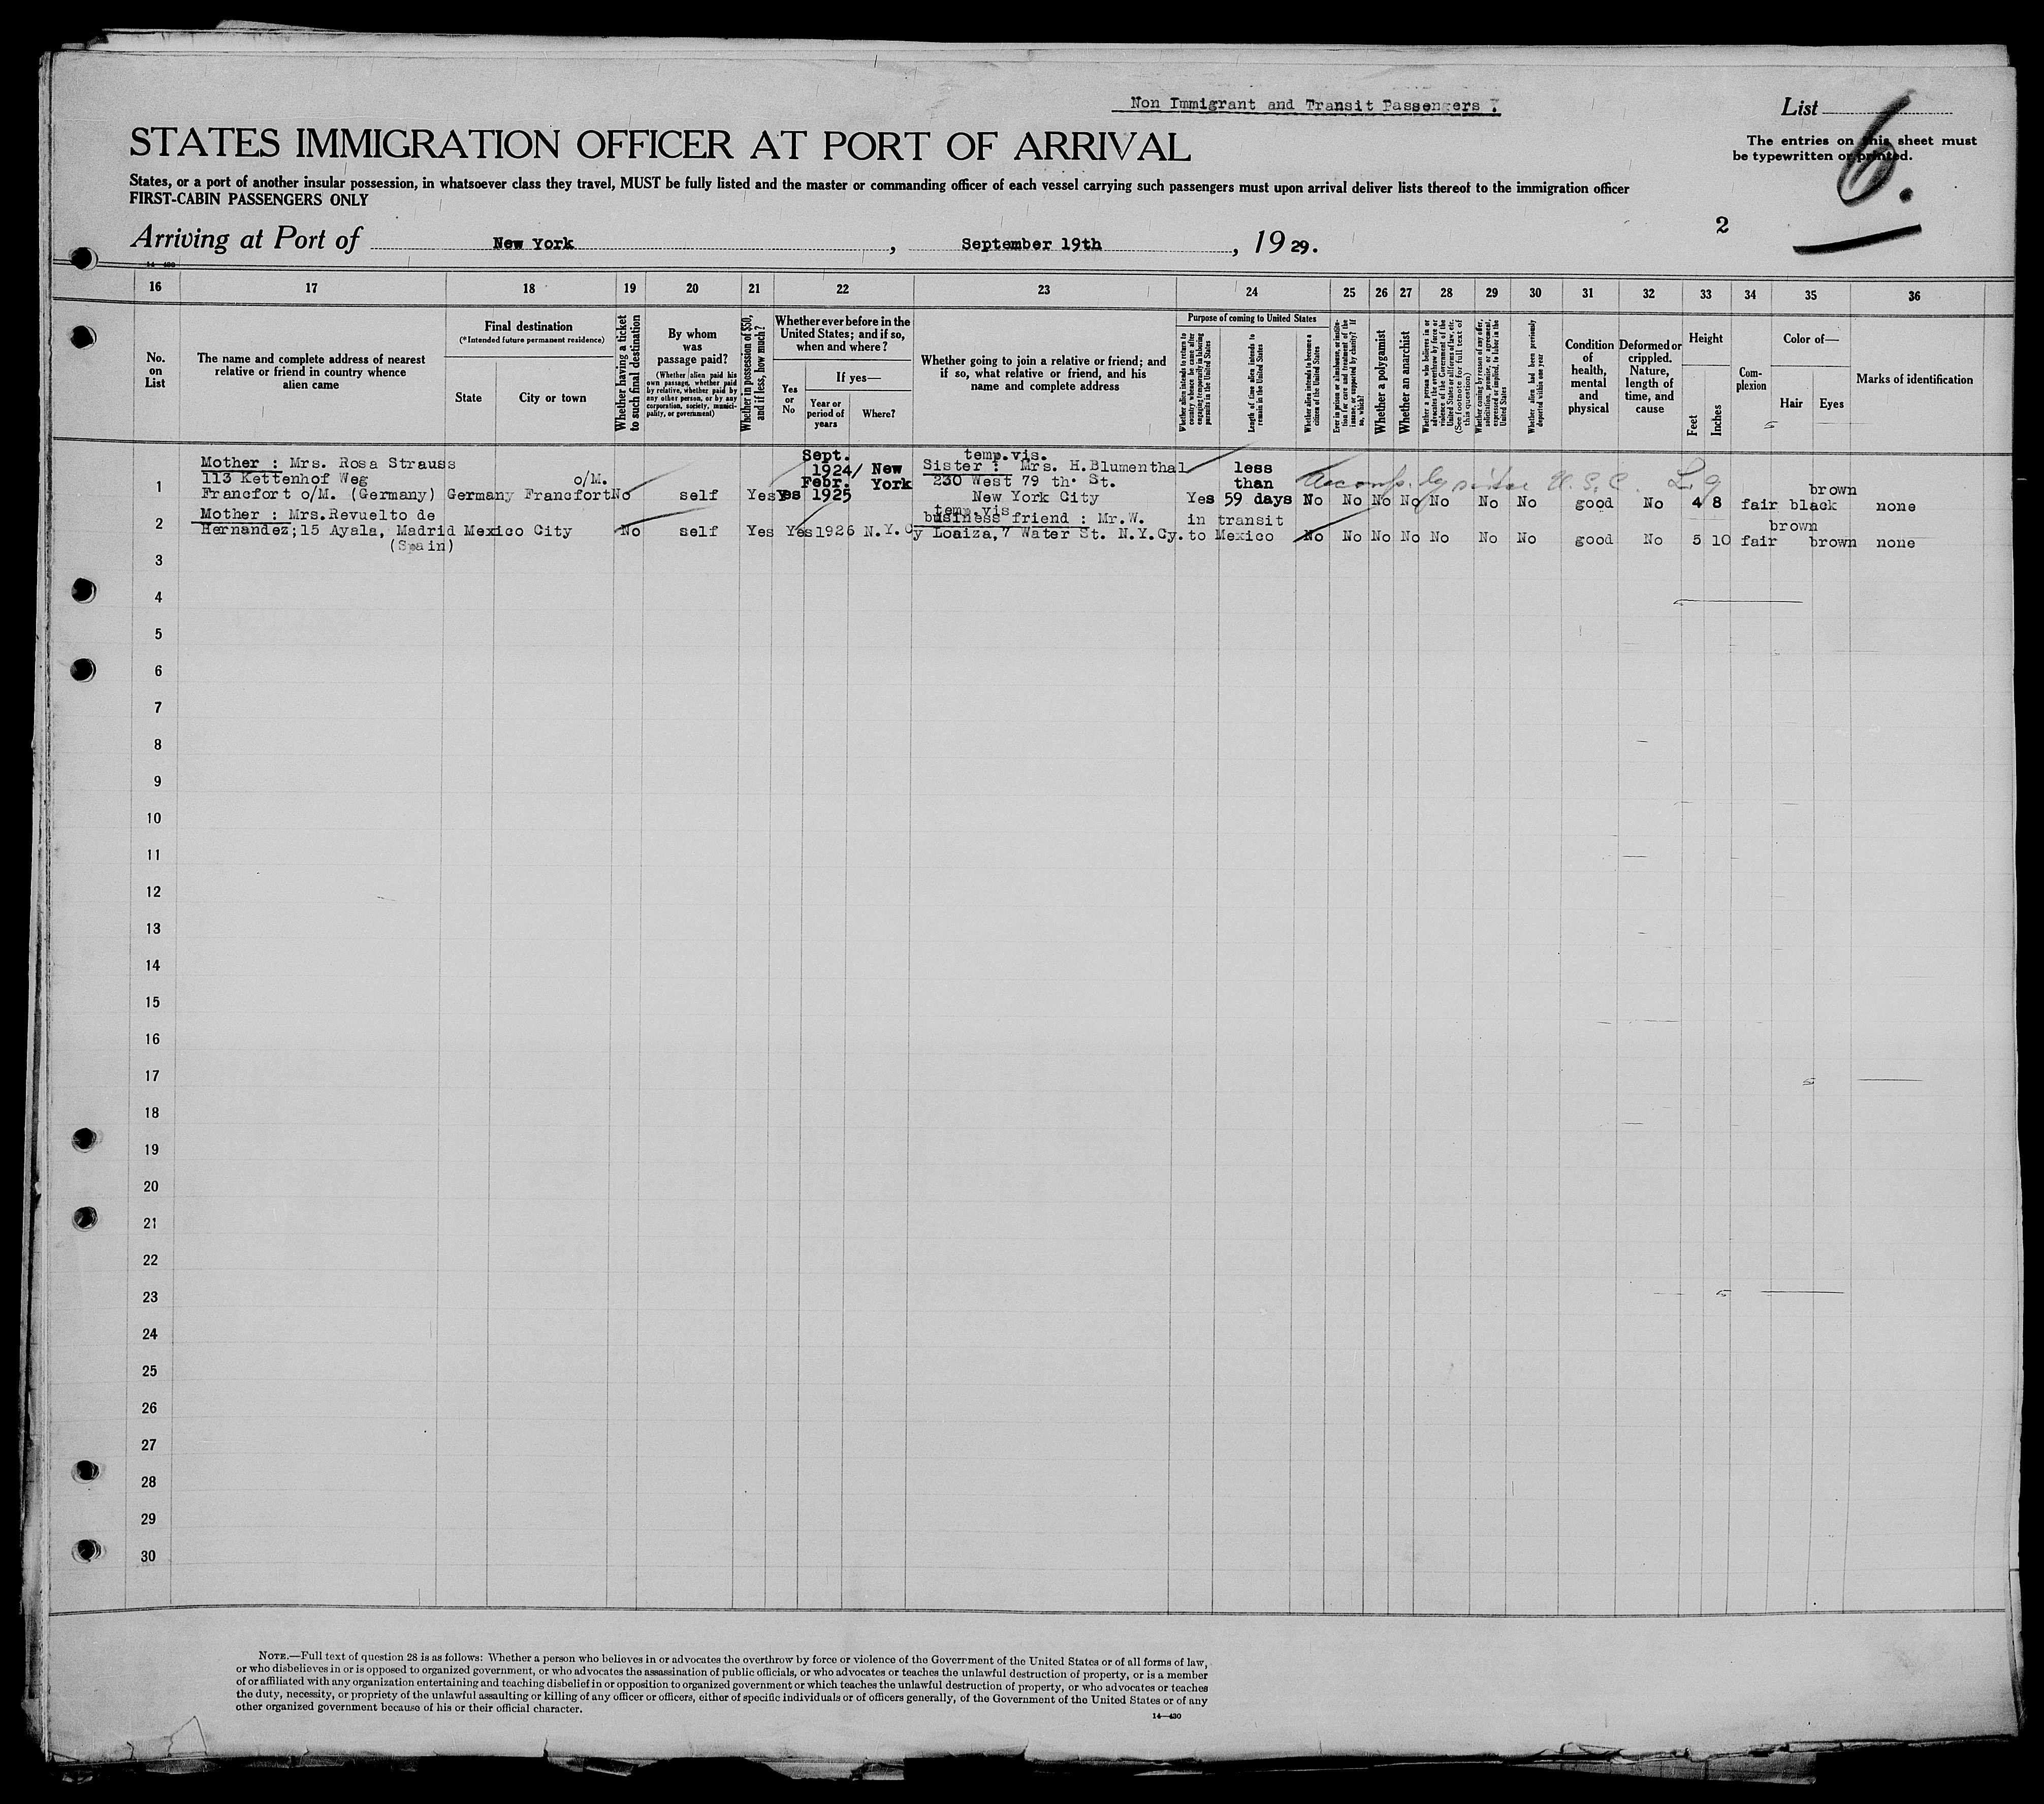 Non Immigrant and Transit Passengers .
List
6.
The entries on this sheet must
be typewritten or printed.
STATES IMMIGRATION OFFICER AT PORT OF ARRIVAL
States, or a port of another insular possession, in whatsoever class they travel, MUST be fully listed and the master or commanding officer of each vessel carrying such passengers must upon arrival deliver lists thereof to the immigration officer
FIRST-CABIN PASSENGERS ONLY
2
Arriving at Port of New York, September 19th, 1929.
14—430
16 17 18 19 20 21 22 23 24 25 26 27 28 29 30 31 32 33 34 35 36
No.
on
List
The name and complete address of nearest
relative or friend in country whence
alien came
Final destination
(*Intended future permanent residence)
State
City or town
Whether having a ticket
to such final destination
By whom
was
passage paid?
(Whether alien paid his
own passage, whether paid
by relative, whether paid by
any other person, or by any
corporation, society, munici-
pality, or government)
Whether in possession of $50,
and if less, how much?
Whether ever before in the
United States; and if so,
when and where?
Yes
or
No
If yes—
Year or
period of
years
Where?
Whether going to join a relative or friend; and
if so, what relative or friend, and his
name and complete address
Purpose of coming to United States
Whether alien intends to return to
country whence he came after
engaging temporarily in laboring
pursuits in the United States
Length of time alien intends to
remain in the United States
Whether alien intends to become a
citizen of the United States
Ever in prison or almshouse, or institu-
tion for care and treatment of the
insane, or supported by charity? If
so, which?
Whether a polygamist
Whether an anarchist
Whether a person who believes in or
advocates the overthrow by force or
violence of the Government of the
United States or all forms of law, etc.
(See footnote for full text of
this question)
Whether coming by reason of any offer,
solicitation, promise, or agreement,
expressed or implied, to labor in the
United States
Whether alien had been previously
deported within one year
Condition
of
health,
mental
and
physical
Deformed or
crippled.
Nature,
length of
time, and
cause
Height
Feet
Inches
Com-
plexion
Color of—
Hair
Eyes
Marks of identification
1
Mother : Mrs. Rosa Strauss
113 Kettenhof Weg
Francfort o/M. (Germany)
Germany
o/M.
Francfort
No
self
Yes
Yes
Sept.
1924/
Febr.
1925
New
York
temp.vis.
Sister : Mrs. H.Blumenthal
230 West 79 th. St.
New York City
Yes
less
than
59 days
No No No No No No No good No 4 8 fair black
brown
none
U. S. C.
2
Mother : Mrs.Revuelto de
Hernandez;15 Ayala, Madrid
(Spain)
Mexico City
No
self
Yes
Yes
1926
N.Y.Cy
temp.vis
business friend : Mr.W.
Loaiza,7 Water St. N.Y.Cy.
in transit
to Mexico
No No No No No No No good No 5 10 fair
brown
brown
none
3
4
5
6
7
8
9
10
11
12
13
14
15
16
17
18
19
20
21
22
23
24
25
26
27
28
29
30
NOTE.—Full text of question 28 is as follows: Whether a person who believes in or advocates the overthrow by force or violence of the Government of the United States or of all forms of law,
or who disbelieves in or is opposed to organized government, or who advocates the assassination of public officials, or who advocates or teaches the unlawful destruction of property, or is a member
of or affiliated with any organization entertaining and teaching disbelief in or opposition to organized government or which teaches the unlawful destruction of property, or who advocates or teaches
the duty, necessity, or propriety of the unlawful assaulting or killing of any officer or officers, either of specific individuals or of officers generally, of the Government of the United States or of any
other organized government because of his or their official character.
14—430